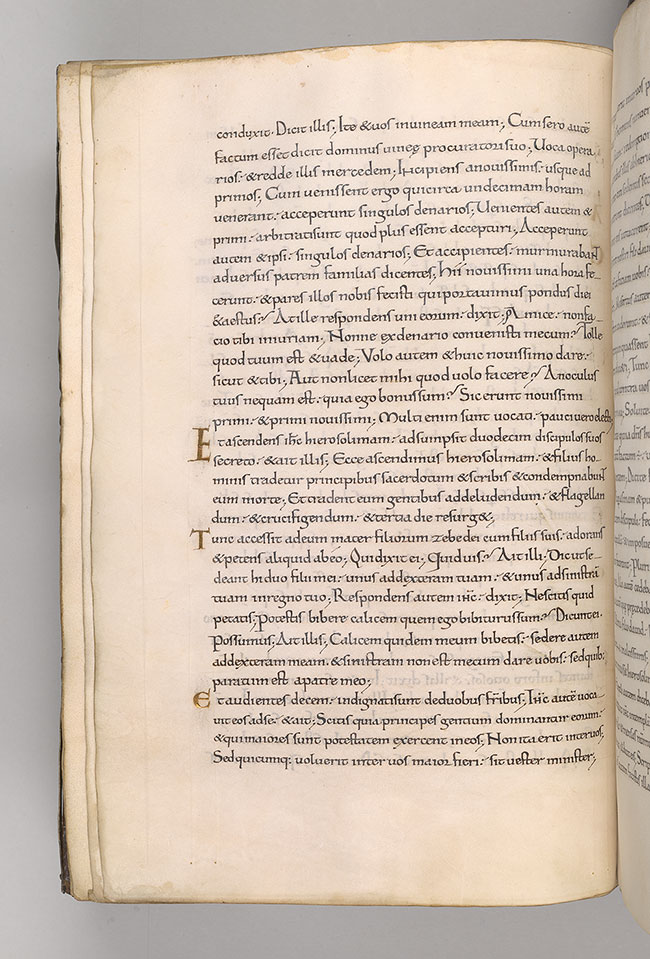 conduxit. Dicit illis; Ite & vos invineam meam; Cumsero autē
factum esset dicit dominus vineę procuratori suo; Voca opera
rios. & redde illis mercedem; Incipiens anovissimis. usque ad
primos; Cum venissent ergo quicirca undecimam horam
venerant. acceperunt singulos denarios; Venientes autem &
primi. arbitratisunt quod plus essent accepturi; Acceperunt
autem & ipsi. singulos denarios; Et accipientes. murmurabant
adversus patrem familias dicentes; Hii novissimi una hora fe
cerunt. & pares illos nobis fecisti quiportavimus pondus diei
& aestus? At ille respondens uni eorum. dixit; Amice. nonfa
cio tibi iniuriam; Nonne exdenario convenisti mecum? Tolle
quod tuum est & vade; Volo autem & huic novissimo dare.
sicut & tibi; Aut nonlicet mihi quod volo facere? An oculus
tuus nequam est. quia ego bonussum? Sic erunt novissimi
primi. & primi novissimi; Multi enim sunt vocati. paucivero electi;
Et ascendens ihc hierosolimam. adsumpsit duodecim discipulos suos
secreto. & ait illis; Ecce ascendimus hierosolimam. & filius ho
minis tradetur principibus sacerdotum & scribis & condempnabunt
eum morte; Et tradent eum gentibus addeludendum. & flagellan
dum. & crucifigendum. & tertia die resurg&;
Tunc accessit adeum mater filiorum zebedei cum filiis suis. adorans
& petens aliquid abeo; Quidixit ei; Quid vis? Ait illi; Dic ut se
deant hi duo filii mei. unus addexteram tuam. & unus adsinistrā
tuam inregno tuo; Respondens autem ihc. dixit; Nescitis quid
petatis; Potestis bibere calicem quem ego bibiturussum? Dicunt ei.
Possumus; Ait illis; Calicem quidem meum bibetis. sedere autem
addexteram meam. & sinistram non est meum dare vobis. sed quib;
paratum est apatre meo;
Et audientes decem. indignatisunt deduobus fribus; Ihc autē voca
vit eos adse. & ait; Scitis quia principes gentium dominantur eorum.
& qui maiores sunt potestatem exercent ineos; Non ita erit inter vos;
Sed quicumq; voluerit inter vos maior fieri. sit vester minister;